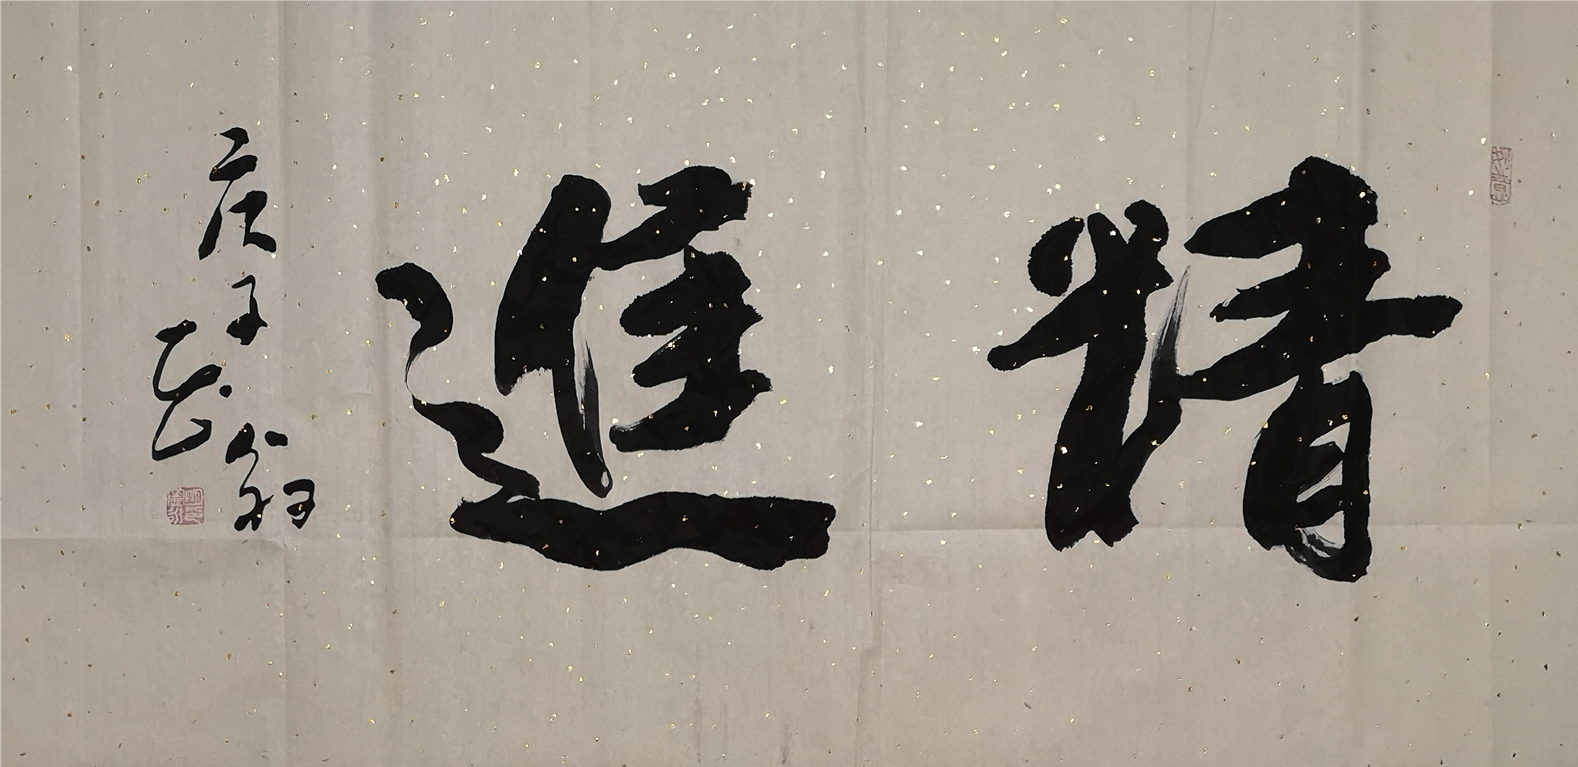 精進
庚子
翁